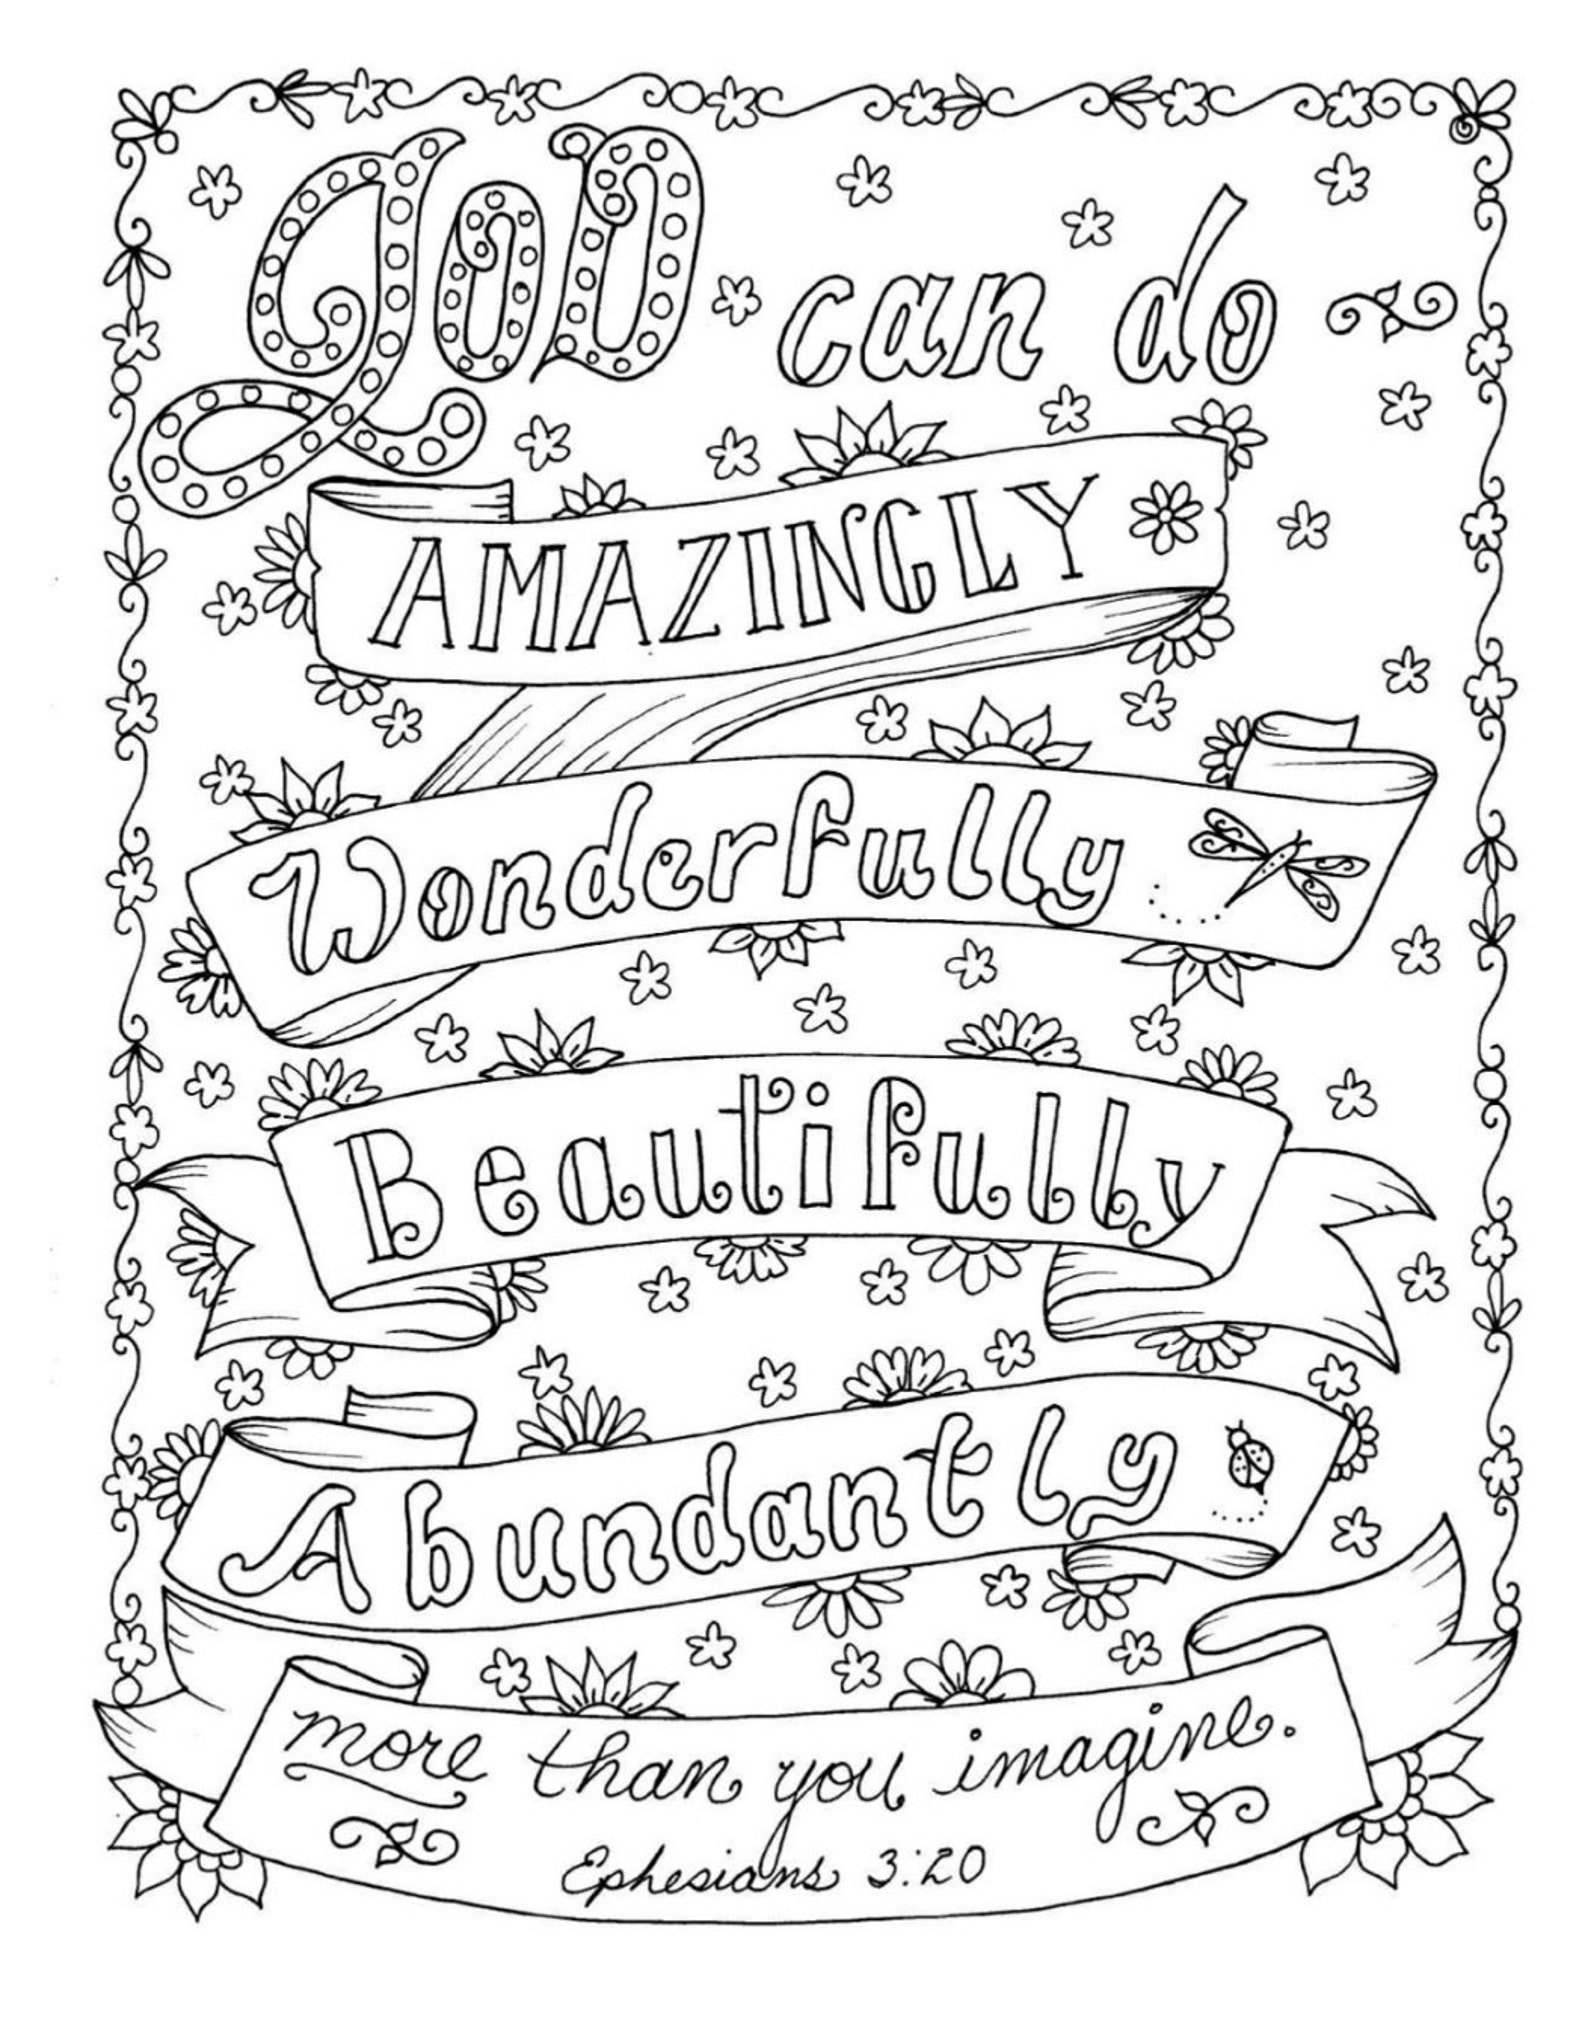 GOD can do
AMAZINGLY
Wonderfully
Beautifully
Abundantly
more than you imagine.
Ephesians 3:20